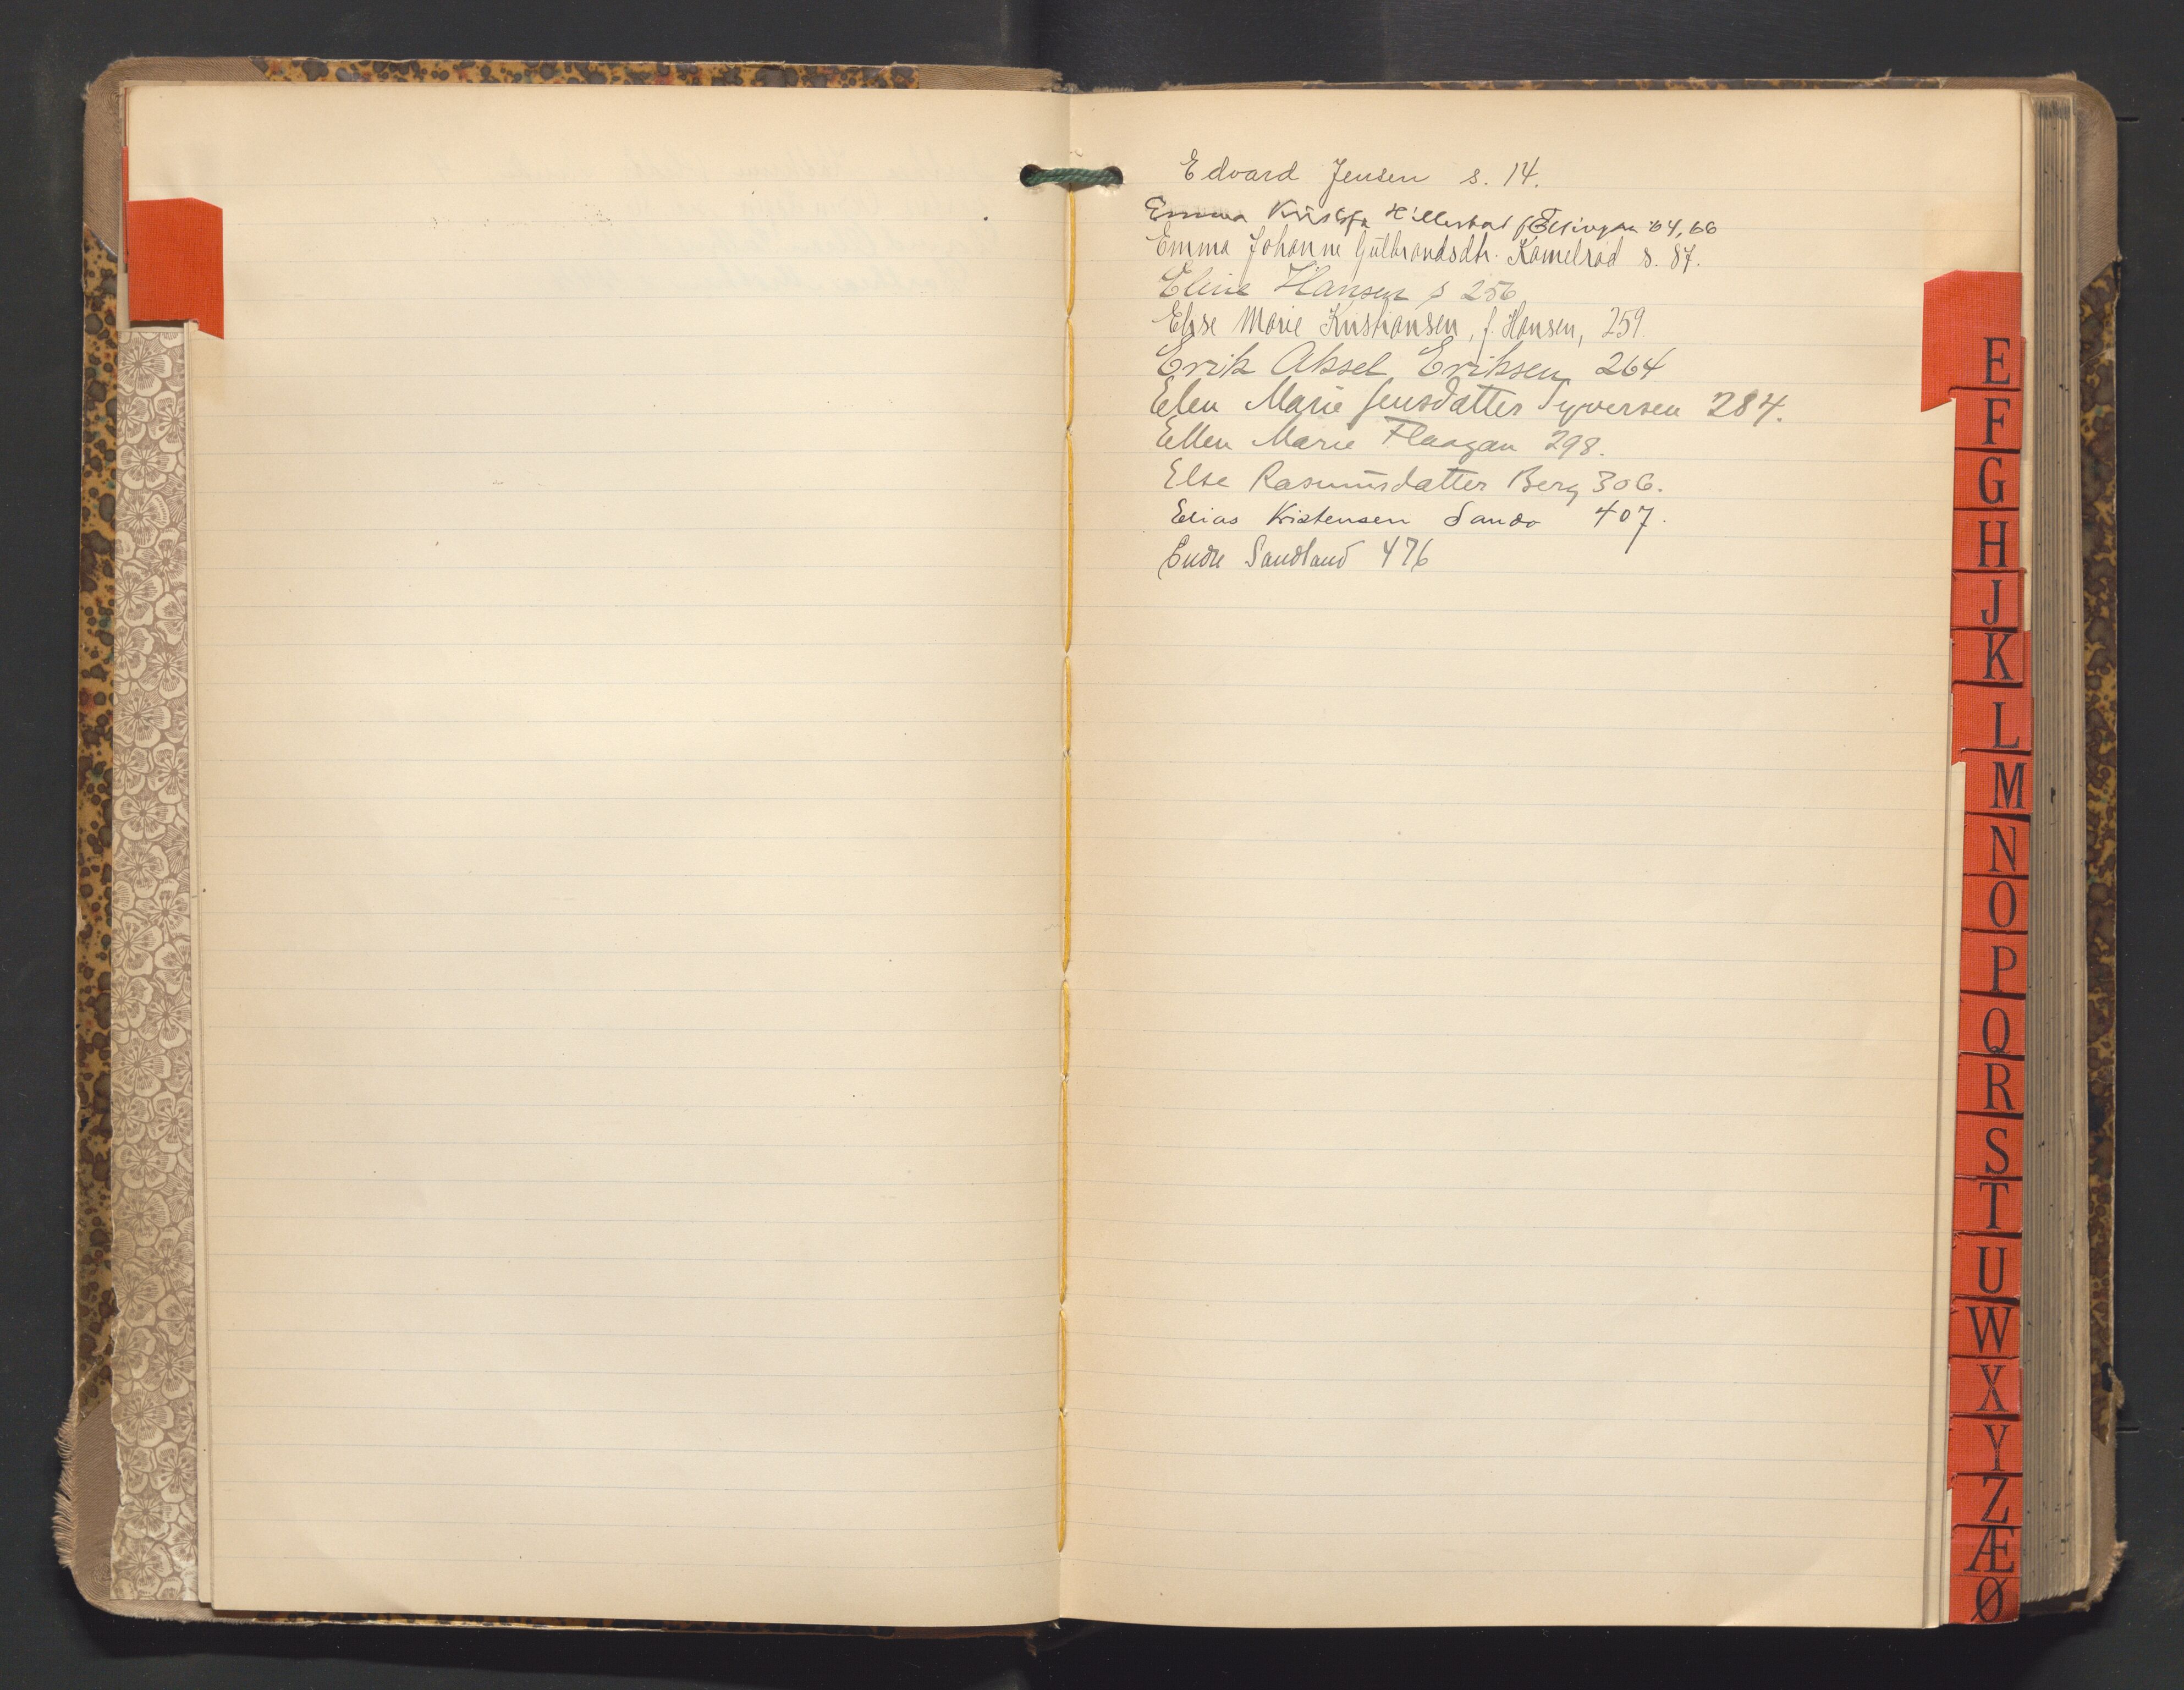 Edvard Jensen s. 14.
Emma Hillestad f. 64, 66
Emma Johanne Gulbrandsdtr. Kamelrød s. 87.
Eline Hansen s 256
Else Marie Kristiansen, f. Hansen, 259.
Erik Aksel Eriksen 264
Elen Marie Jensdatter Syversen 284.
Ellen Marie Flaagan 298.
Else Rasmusdatter Berg 306.
Elias Kristensen Sando 407.
Endre Sandland 476
E
F
G
H
J
K
L
M
N
O
P
Q
R
S
T
U
W
X
Y
Z
Æ
Ø